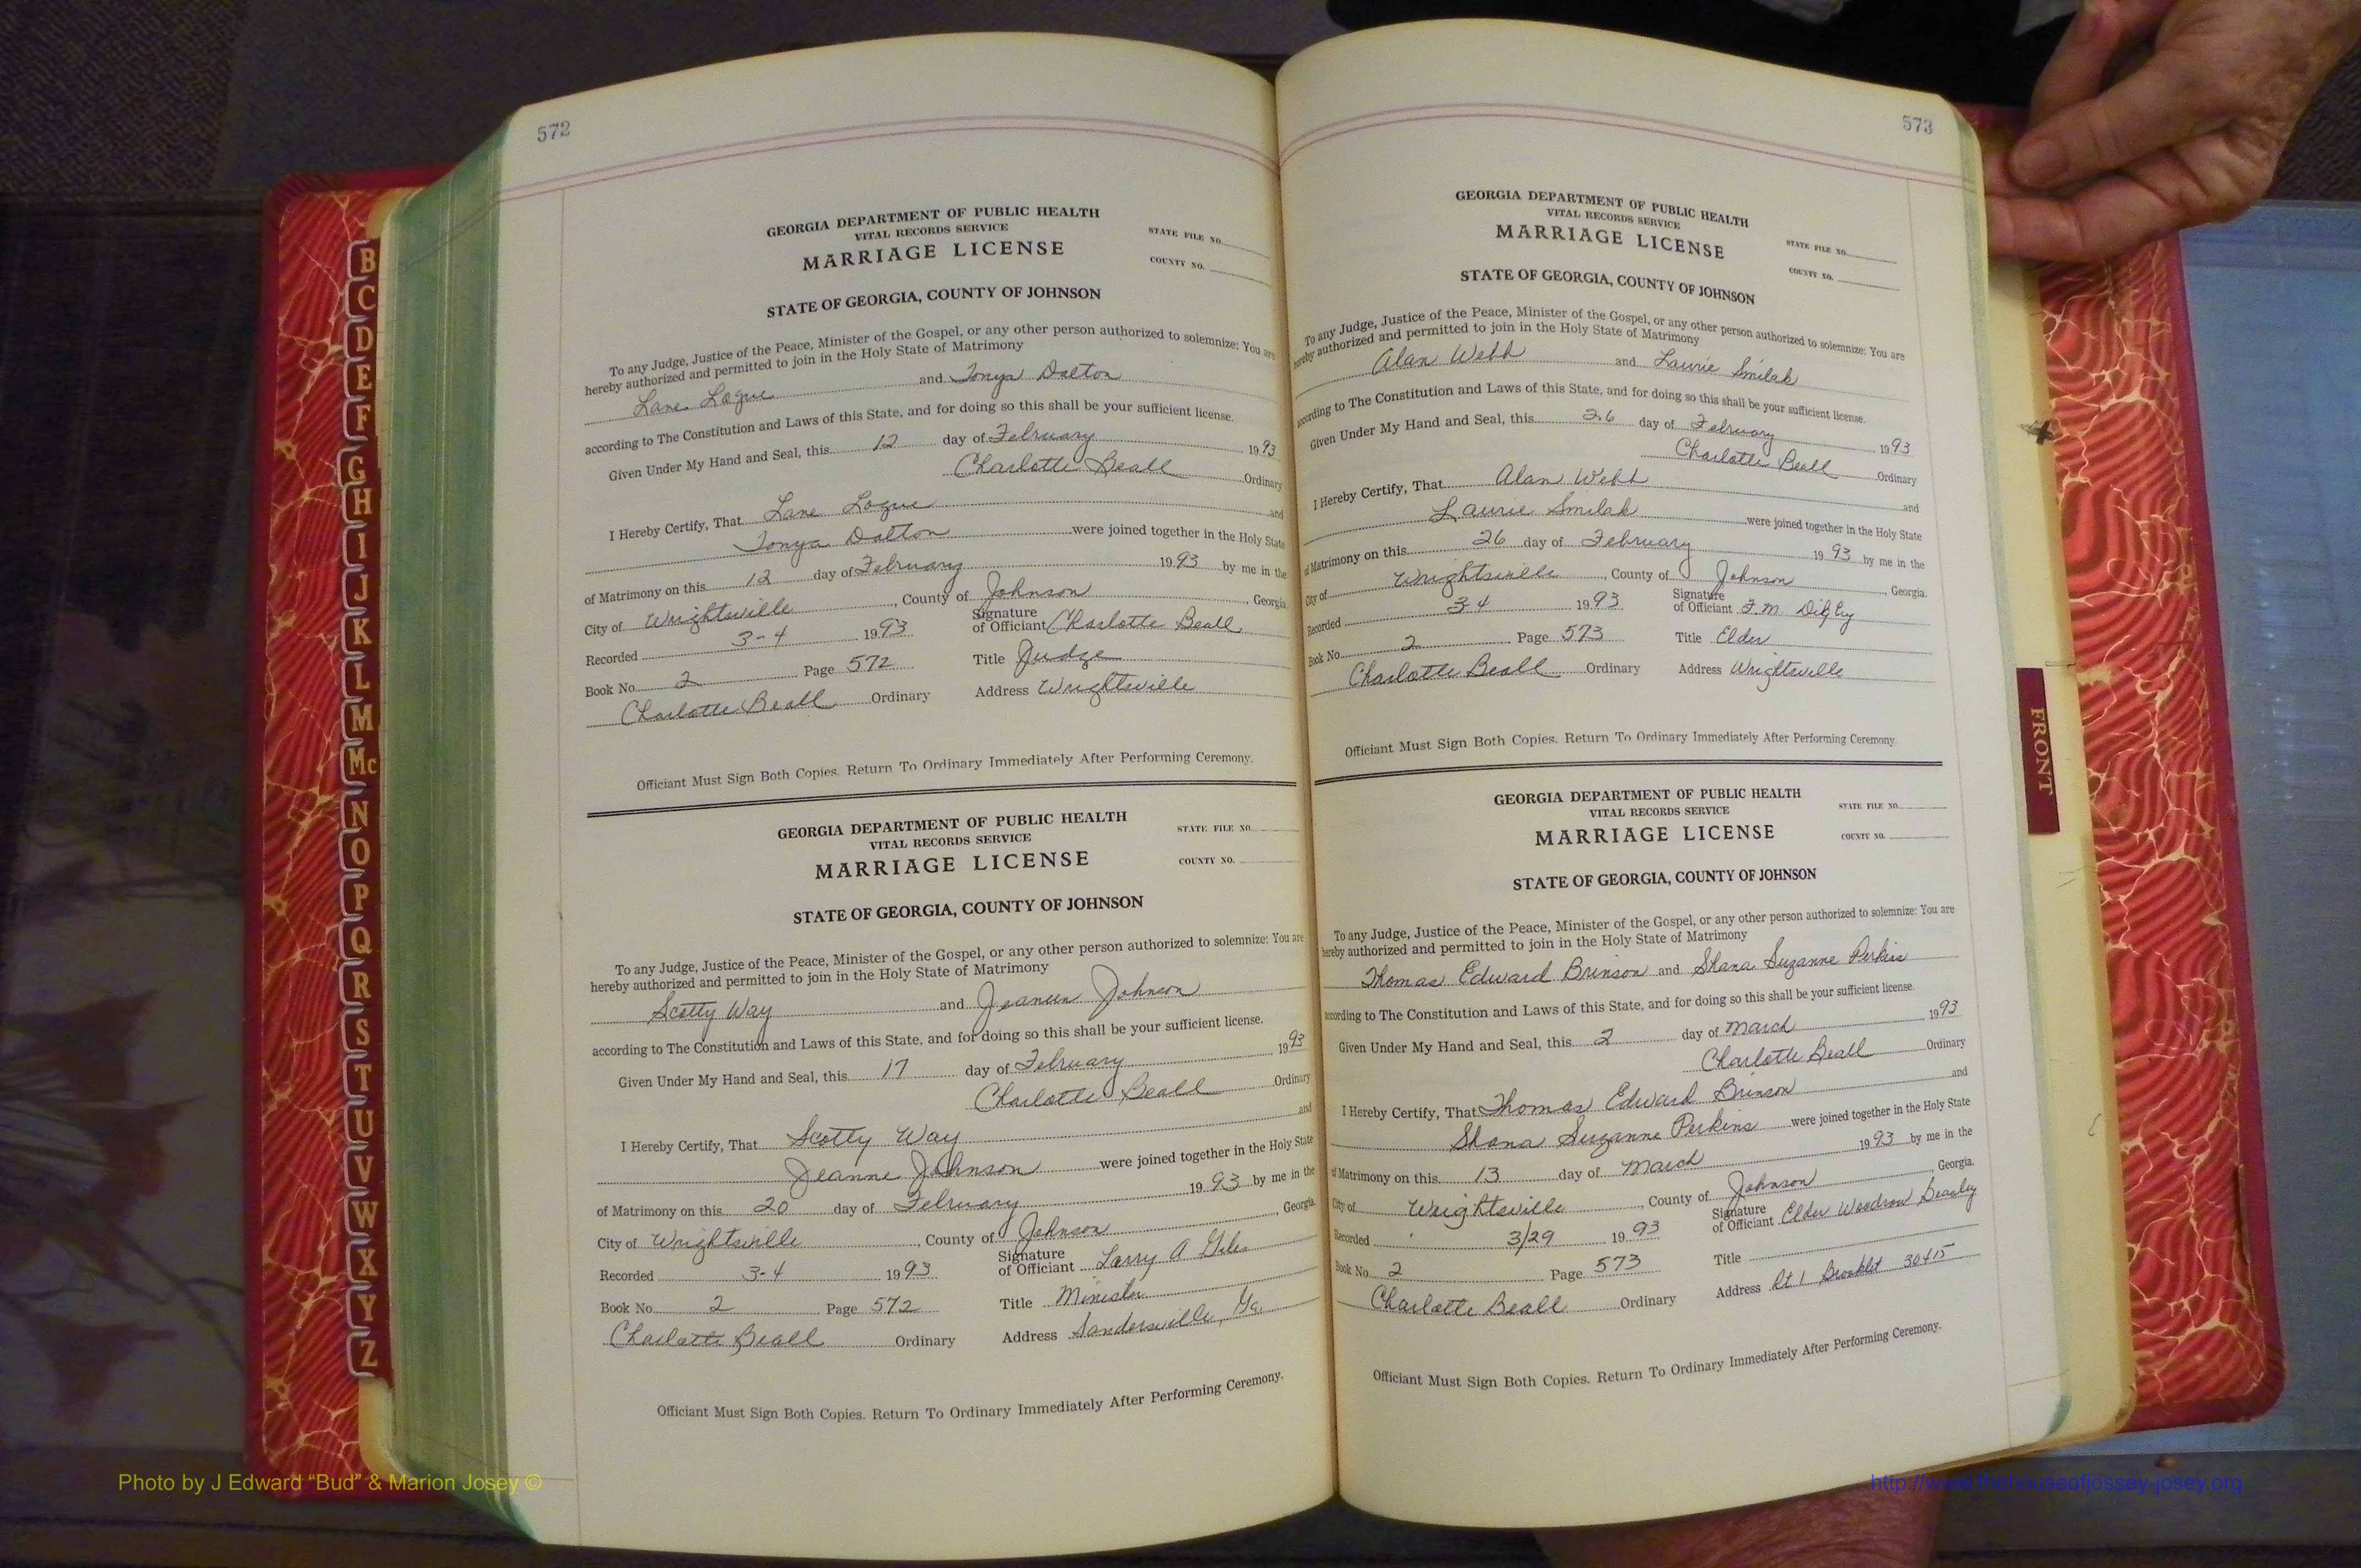 572
GEORGIA DEPARTMENT OF PUBLIC HEALTH
VITAL RECORDS SERVICE
MARRIAGE LICENSE
STATE FILE NO.
COUNTY NO.
STATE OF GEORGIA, COUNTY OF JOHNSON
To any Judge, Justice of the Peace, Minister of the Gospel, or any other person authorized to solemnize: You are
hereby authorized and permitted to join in the Holy State of Matrimony
Lane Logue and Tonya Dalton
according to The Constitution and Laws of this State, and for doing so this shall be your sufficient license.
Given Under My Hand and Seal, this 12 day of February 1993
Charlotte Beall Ordinary
I Hereby Certify, That Lane Logue and
Tonya Dalton were joined together in the Holy State
of Matrimony on this 12 day of February 1993 by me in the
City of Wrightsville, County of Johnson, Georgia
Recorded 3-4 1993 Signature of Officiant Charlotte Beall
Book No. 2 Page 572 Title Judge
Charlotte Beall Ordinary Address Wrightsville
Officiant Must Sign Both Copies. Return To Ordinary Immediately After Performing Ceremony.
GEORGIA DEPARTMENT OF PUBLIC HEALTH
VITAL RECORDS SERVICE
MARRIAGE LICENSE
STATE FILE NO.
COUNTY NO.
STATE OF GEORGIA, COUNTY OF JOHNSON
To any Judge, Justice of the Peace, Minister of the Gospel, or any other person authorized to solemnize: You are
hereby authorized and permitted to join in the Holy State of Matrimony
Scotty Way and Johnson
according to The Constitution and Laws of this State, and for doing so this shall be your sufficient license.
Given Under My Hand and Seal, this 17 day of February 1993
Charlotte Beall Ordinary
I Hereby Certify, That Scotty Way and
Jeanne Johnson were joined together in the Holy State
of Matrimony on this 20 day of February 1993 by me in the
City of Wrightsville, County of Johnson, Georgia
Recorded 3-4 1993 Signature of Officiant Larry A Giles
Book No. 2 Page 572 Title Minister
Charlotte Beall Ordinary Address Sandersville, Ga.
Officiant Must Sign Both Copies. Return To Ordinary Immediately After Performing Ceremony.
573
GEORGIA DEPARTMENT OF PUBLIC HEALTH
VITAL RECORDS SERVICE
MARRIAGE LICENSE
STATE FILE NO.
COUNTY NO.
STATE OF GEORGIA, COUNTY OF JOHNSON
To any Judge, Justice of the Peace, Minister of the Gospel, or any other person authorized to solemnize: You are
hereby authorized and permitted to join in the Holy State of Matrimony
Alan Webb and Laurie Smilak
according to The Constitution and Laws of this State, and for doing so this shall be your sufficient license.
Given Under My Hand and Seal, this 26 day of February 1993
Charlotte Beall Ordinary
I Hereby Certify, That Alan Webb and
Laurie Smilak were joined together in the Holy State
of Matrimony on this 26 day of February 1993 by me in the
City of Wrightsville, County of Johnson, Georgia.
Recorded 3-4 1993 Signature of Officiant F.M. Digby
Book No. 2 Page 573 Title Elder
Charlotte Beall Ordinary Address Wrightsville
Officiant Must Sign Both Copies. Return To Ordinary Immediately After Performing Ceremony.
GEORGIA DEPARTMENT OF PUBLIC HEALTH
VITAL RECORDS SERVICE
MARRIAGE LICENSE
STATE FILE NO.
COUNTY NO.
STATE OF GEORGIA, COUNTY OF JOHNSON
To any Judge, Justice of the Peace, Minister of the Gospel, or any other person authorized to solemnize: You are
hereby authorized and permitted to join in the Holy State of Matrimony
Thomas Edward Brinson and Shana Suzanne Perkins
according to The Constitution and Laws of this State, and for doing so this shall be your sufficient license.
Given Under My Hand and Seal, this 2 day of March 1993
Charlotte Beall Ordinary
I Hereby Certify, That Thomas Edward Brinson and
Shana Suzanne Perkins were joined together in the Holy State
of Matrimony on this 13 day of March 1993 by me in the
City of Wrightsville, County of Johnson, Georgia.
Recorded 3/29 1993 Signature of Officiant Elder Woodrow Beasley
Book No. 2 Page 573 Title
Charlotte Beall Ordinary Address Rt 1 Brooklet 30415
Officiant Must Sign Both Copies. Return To Ordinary Immediately After Performing Ceremony.
B
C
D
E
F
G
H
I
J
K
L
M
Mc
N
O
P
Q
R
S
T
U
V
W
X
Y
Z
FRONT
Photo by J Edward “Bud” & Marion Josey ©
http://www.thehouseofjossey-josey.org